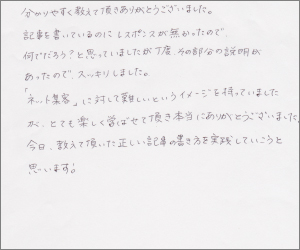 分かりやすく教えて頂きありがとうございました。
記事を書いているのにレスポンスが無かったので、
何でだろう?と思っていましたが丁度、その部分の説明が
あったので、スッキリしました。
「ネット集客」に対して難しいというイメージを持っていました
が、とても楽しく学ばせて頂き本当にありがとうございました。
今日、教えて頂いた正しい記事の書き方を実践していこうと
思います!